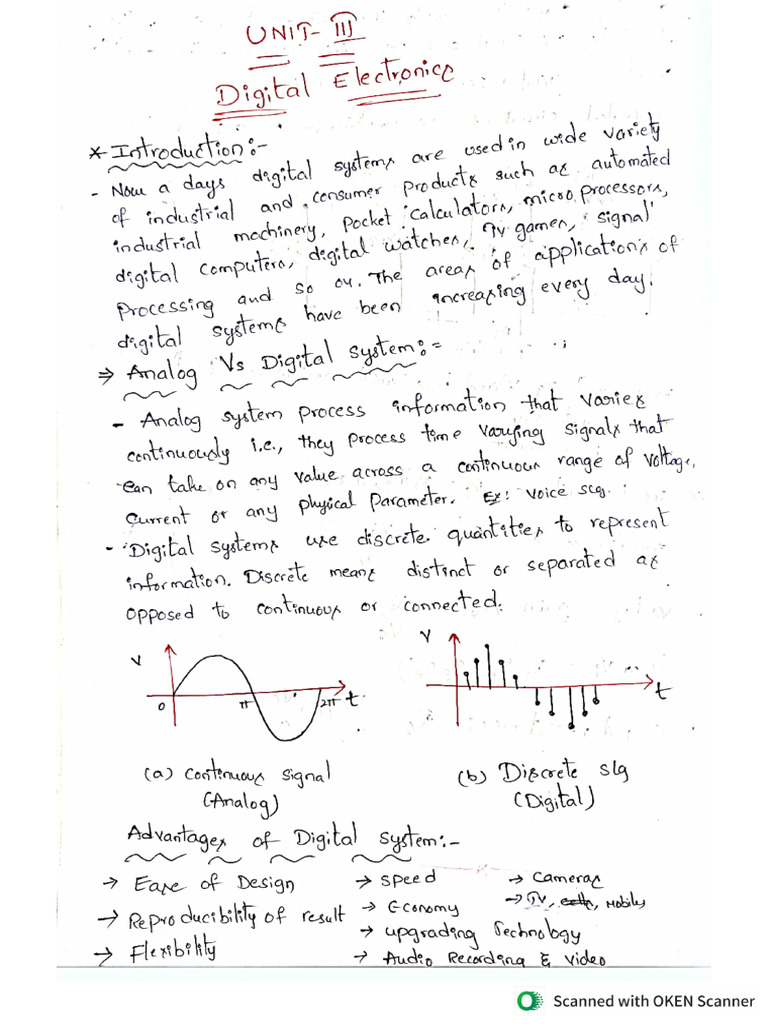 UNIT-III
Digital Electronics
* Introduction:-
- Now a days digital systems are used in wide variety
of industrial and consumer products such as automated
industrial machinery, pocket calculators, micro processors,
digital computers, digital watches, TV games, signal
processing and so on. The areas of applications of
digital systems have been increasing every day.
⇒ Analog Vs Digital system:=
- Analog system process information that varies
continuously i.e., they process time varying signals that
can take on any value across a continuous range of voltage,
current or any physical parameter. Ex: voice sig.
- Digital systems use discrete quantities to represent
information. Discrete means distinct or separated as
opposed to continuous or connected.
V 0 π 2π t
V t
(a) continuous signal
(Analog)
(b) Discrete sig
(Digital)
Advantages of Digital system:-
→ Ease of Design → speed → cameras
→ Reproducibility of result → Economy → TV, Mobiles
→ Flexibility → upgrading Technology
→ Audio Recording & Video
Scanned with OKEN Scanner